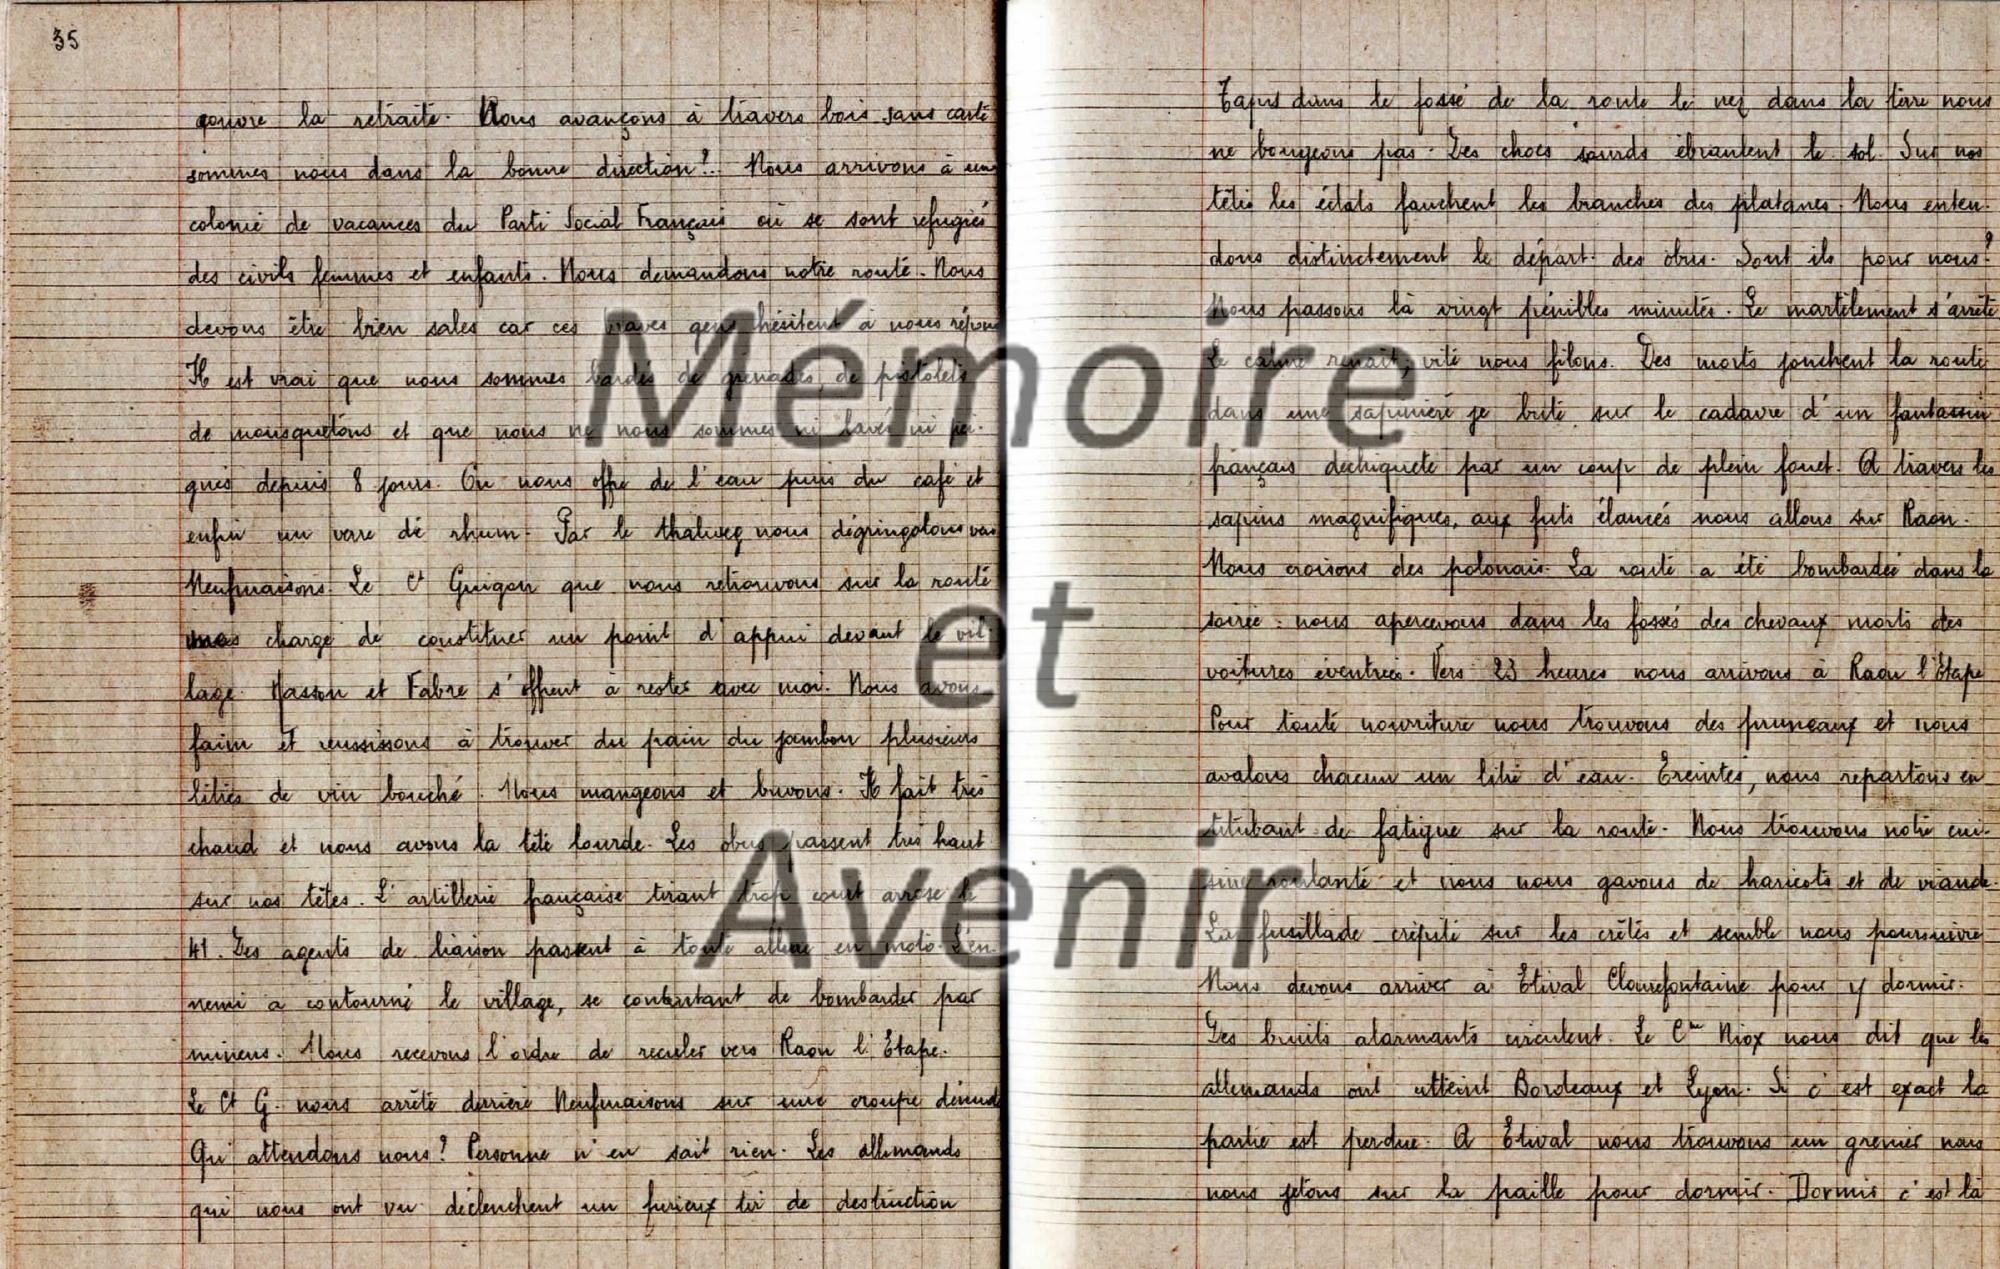 35
couvre la retraite. Nous avançons à travers bois sans carte
sommes nous dans la bonne direction?.. Nous arrivons à une
colonie de vacances du Parti Social Français où se sont refugiés
des civils femmes et enfants. Nous demandons notre route. Nous
devons être bien sales car ces braves gens hésitent à nous répond
Il est vrai que nous sommes bardés de grenades, de pistolets
de mousquetons et que nous ne nous sommes ni lavés ni pei-
gnés depuis 8 jours. On nous offre de l'eau puis du café et
enfin un verre de rhum. Par le thalweg nous dégringolons vers
Neufmaisons. Le Ct Guigon que nous retrouvons sur la route
charge de constituer un point d'appui devant le vil-
lage. Masson et Fabre s'offrent à rester avec moi. Nous avons
faim et reussissons à trouver du pain du jambon plusieurs
litres de vin bouché. Nous mangeons et buvons. Il fait très
chaud et nous avons la tête lourde. Les obus passent très haut
sur nos têtes. L'artillerie française tirant trop court arrose le
41. Des agents de liaison passent à toute allure en moto. L'en-
nemi a contourné le village, se contentant de bombarder par
minens. Nous recevons l'ordre de reculer vers Raon l'Etape.
Le Ct G. nous arrête derrière Neufmaisons sur une croupe dénud
Qu'attendons nous? Personne n'en sait rien. Les allemands
qui nous ont vu déclenchent un furieux tir de destruction
Tapis dans le fossé de la route le nez dans la terre nous
ne bougeons pas. Des chocs sourds ébranlent le sol. Sur nos
têtes les éclats fauchent les branches des platanes. Nous enten-
dons distinctement le départ des obus. Sont ils pour nous?
Nous passons là vingt pénibles minutes. Le martèlement s'arrête
Le calme renait, vite nous filons. Des morts jonchent la route
dans une sapinière je bute sur le cadavre d'un fantassin
français déchiqueté par un coup de plein fouet. A travers les
sapins magnifiques, aux futs élancés nous allons sur Raon.
Nous croisons des polonais. La route a été bombardée dans la
soirée : nous apercevons dans les fossés des chevaux morts des
voitures éventrées. Vers 23 heures nous arrivons à Raon l'Etape
Pour toute nourriture nous trouvons des pruneaux et nous
avalons chacun un litre d'eau. Ereintés, nous repartons en
titubant de fatigue sur la route. Nous trouvons notre cui-
sine roulante et nous nous gavons de haricots et de viande.
La fusillade crépite sur les crêtes et semble nous poursuivre
Nous devons arriver à Etival Clairefontaine pour y dormir.
Des bruits alarmants circulent. Le Cne Niox nous dit que les
allemands ont atteint Bordeaux et Lyon. Si c'est exact la
partie est perdue. A Etival nous trouvons un grenier nous
nous jetons sur la paille pour dormir. Dormir c'est là
Mémoire
et
Avenir